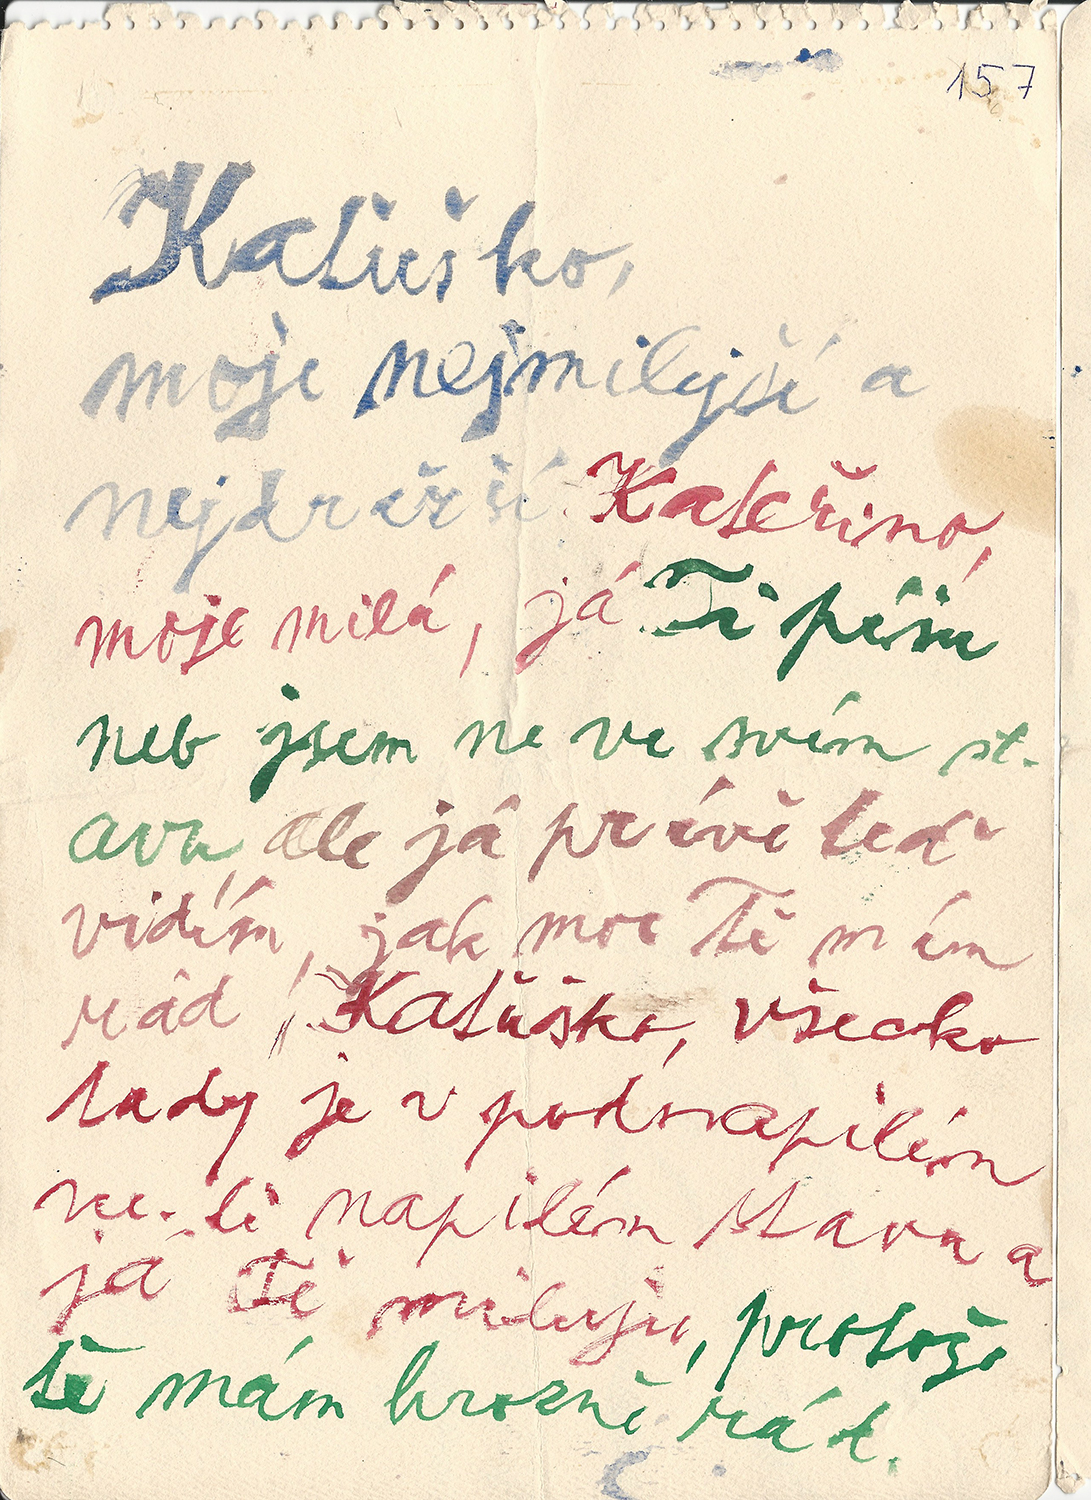 157
Katuško,
moje nejmilejší a
nejdražší Kateřino,
moje milá, já Ti píšu
neb jsem ne ve svém st-
avu, ale já právě teď
vidím, jak moc Tě mám
rád, Katuško, všecko
tady je v podnapilém
ne-li napilém stavu a
já Tě miluju, protože
tě mám hrozně rád.